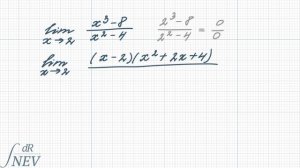 lim x→2 (x³-8)/(x²-4) (2³-8)/(2²-4) = 0/0
lim x→2 (x-2)(x²+2x+4)
∫ dR NEV